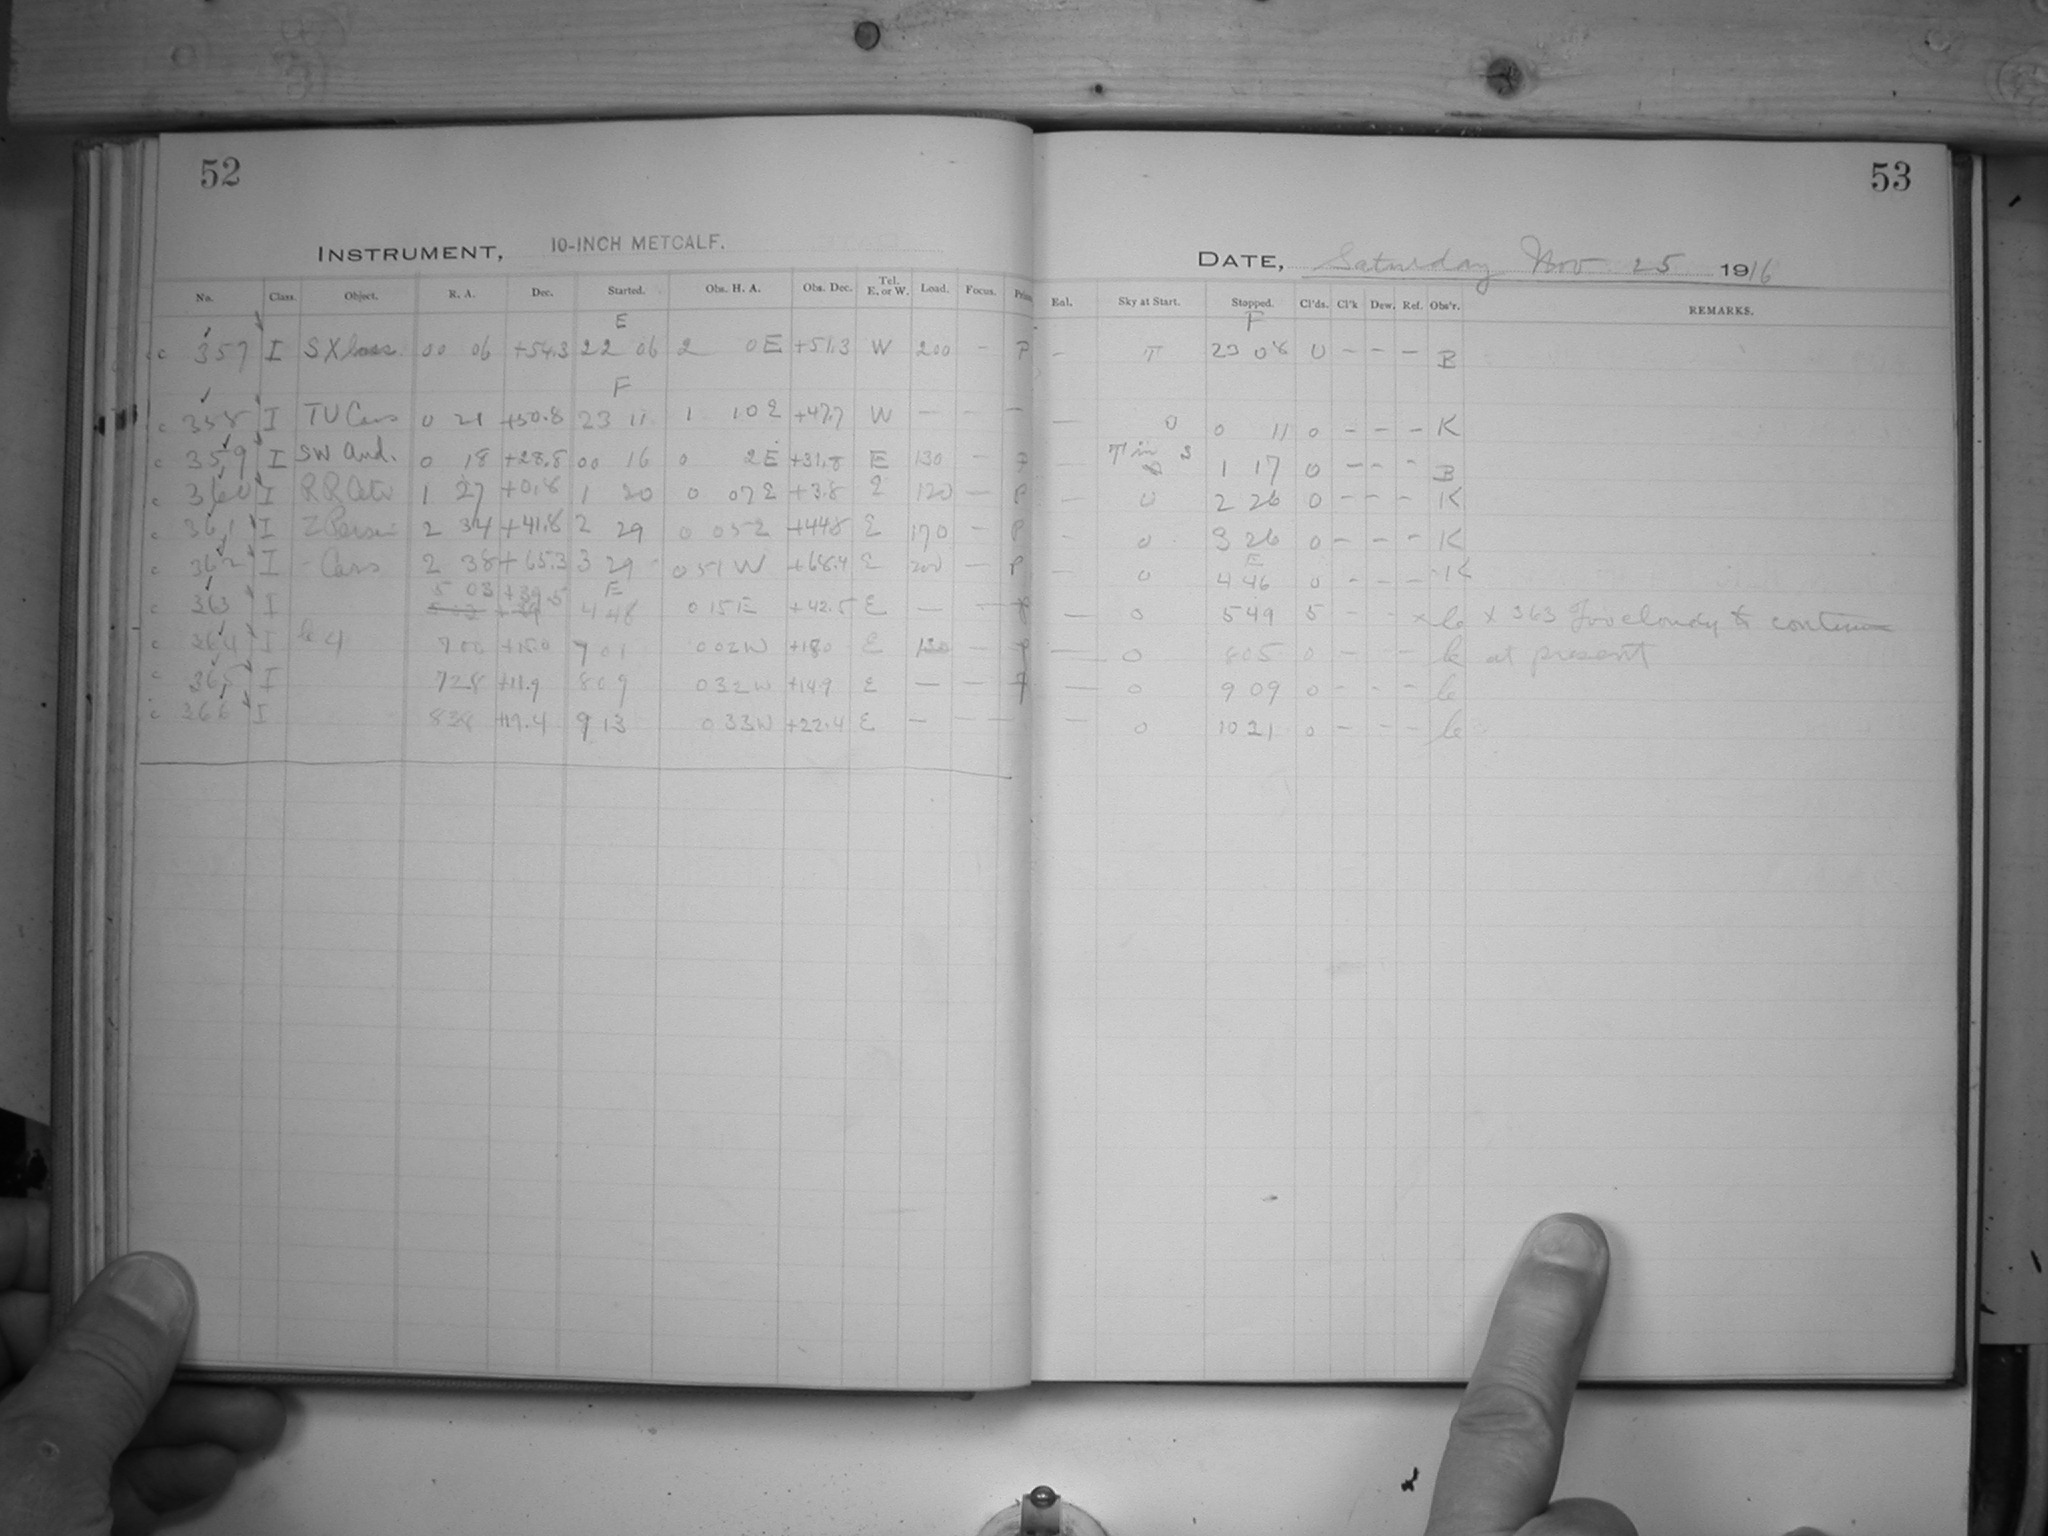 52
53
INSTRUMENT, 10-INCH METCALF.
DATE, Saturday Nov 25 1916
No. Class. Object. R. A. Dec. Started. Obs. H. A. Obs. Dec. Tel. E. or W. Load. Focus. Eal. Sky at Start. Stopped. Cl'ds. Cl'k Dew. Ref. Obs'r. REMARKS.
E F
c 357 I S X 00 06 +54.3 22 06 2 0E +51.3 W 200 - - T 23 08 0 - - - B
F
c 358 I TU Cass 0 21 +50.8 23 11 1 10 E +47.7 W - - - - 0 0 11 0 - - - K
c 359 I SW And. 0 18 +28.8 00 16 0 2E +31.8 E 130 - T in S 1 17 0 - - - B
c 360 I RR Ceti 1 27 +0.8 1 20 0 07 E +3.8 E 120 - P - 0 2 26 0 - - - K
c 361 I Z Persei 2 34 +41.8 2 29 0 05 E +44.8 E 170 - P - 0 3 26 0 - - - K
c 362 I - Cass 2 38 +65.3 3 29 0 51 W +68.4 E 200 - P - 0 4 46 0 - - - K
5 03 +39.5 E E
c 363 I 4 48 0 15 E +42.5 E - - - 0 5 49 5 - - x le x 363 Too cloudy to continue
c 364 I 4 7 00 +15.0 7 01 0 02 W +18.0 E 130 - - 0 8 05 0 - - - le at present
c 365 I 7 28 +11.9 8 09 0 32 W +14.9 E - - - 0 9 09 0 - - - le
c 366 I 8 38 +19.4 9 13 0 33 W +22.4 E - - - 0 10 21 0 - - - le